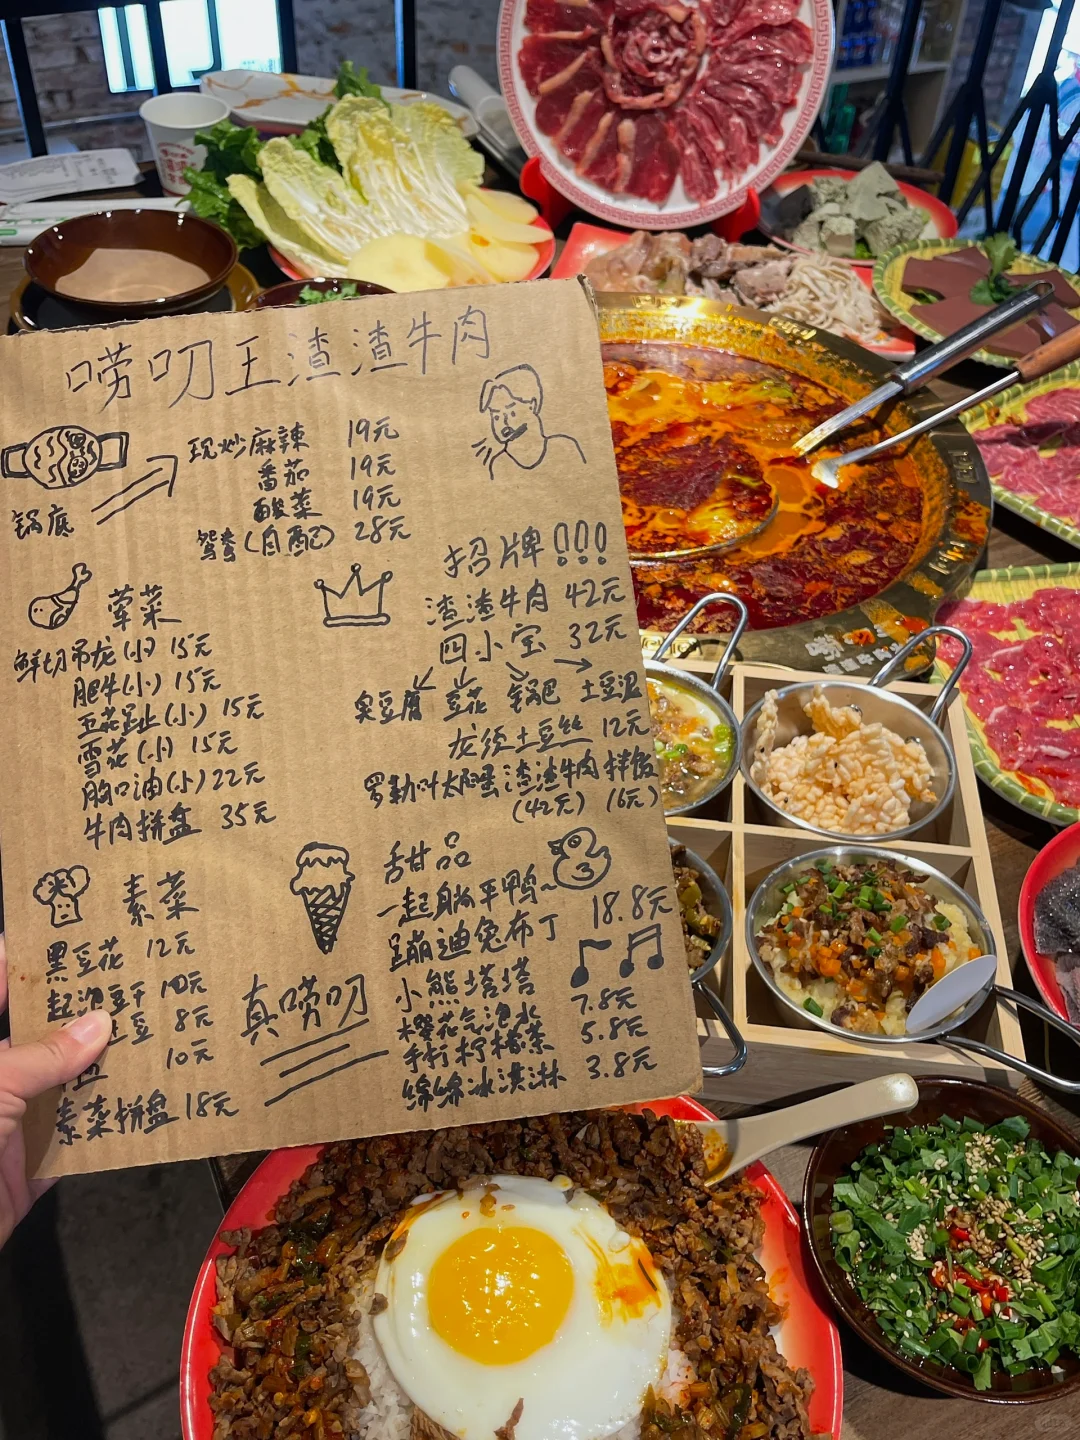 唠叨王渣渣牛肉
锅底
现炒麻辣 19元
番茄 19元
酸菜 19元
鸳鸯(自配) 28元
招牌!!!
渣渣牛肉 42元
四小宝 32元
臭豆腐 豆花 锅巴 土豆泥
龙须土豆丝 12元
罗勒叶太阳蛋渣渣牛肉拌饭
(42元) (6元)
荤菜
鲜切吊龙(小) 15元
肥牛(小) 15元
五花趾(小) 15元
雪花(小) 15元
胸口油(小) 22元
牛肉拼盘 35元
素菜
黑豆花 12元
起泡豆干 10元
土豆 8元
10元
素菜拼盘 18元
真唠叨
甜品
一起躺平鸭~
蹦迪兔布丁 18.8元
小熊塔塔
樱花气泡水 7.8元
手打柠檬茶 5.8元
绵绵冰淇淋 3.8元